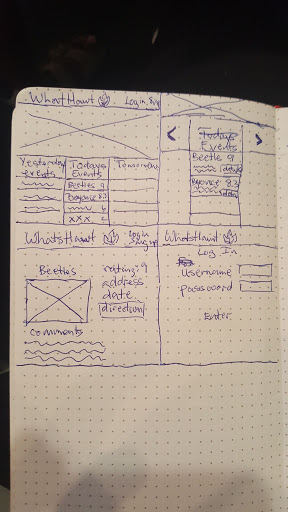 WhatsHawt Login,
Yesterday events
Todays Events
Tomorrow
Beetles 9
Beyonce 8.3
xxx
< Todays Events >
Beetle 9
details
Beyonce 8.3
WhatsHawt Login Sign up
Beetles
rating: 9
address
date
direction
comments
WhatsHawt
Log In
Username
password
Enter